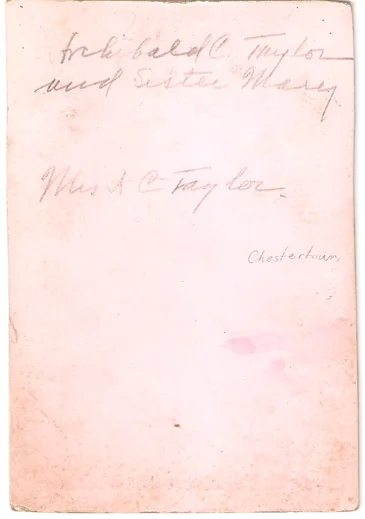 Archibald C. Taylor
and Sister Mary
Mrs A C Taylor.
Chestertown,